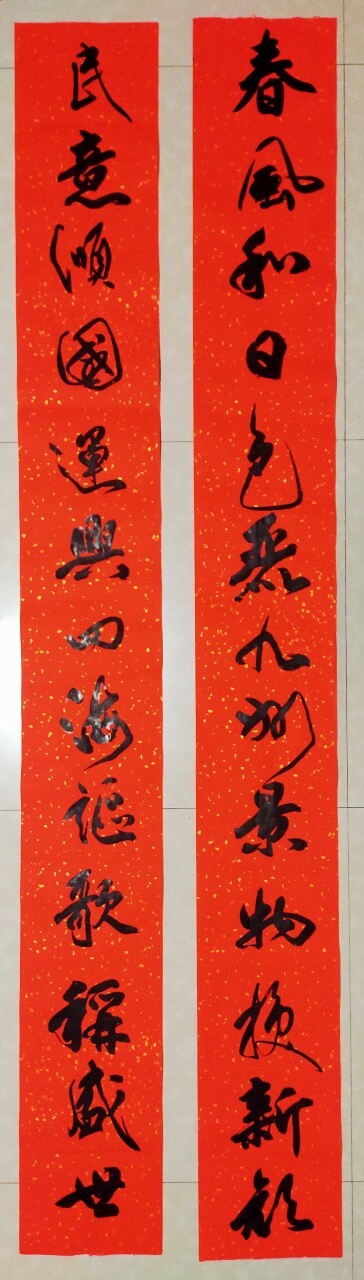 春風和日色麗九州景物换新顏
民意順國運興四海謳歌稱盛世